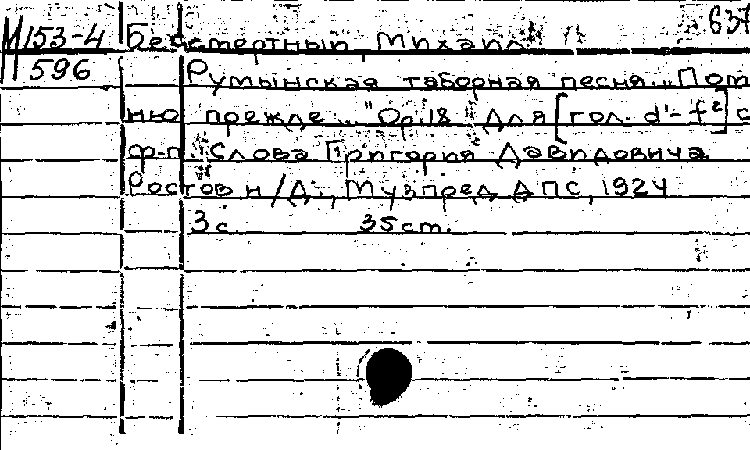 М153-4 Бессмертный, Михаил 637
596 Румынская таборная песня. "Пом
ню прежде..." Ор.18. Для [гол. d'-f²] с
ф-п. Слова Григория Давидовича
Ростов н/Д., Музпред ДПС, 1924
3с. 35 ст.